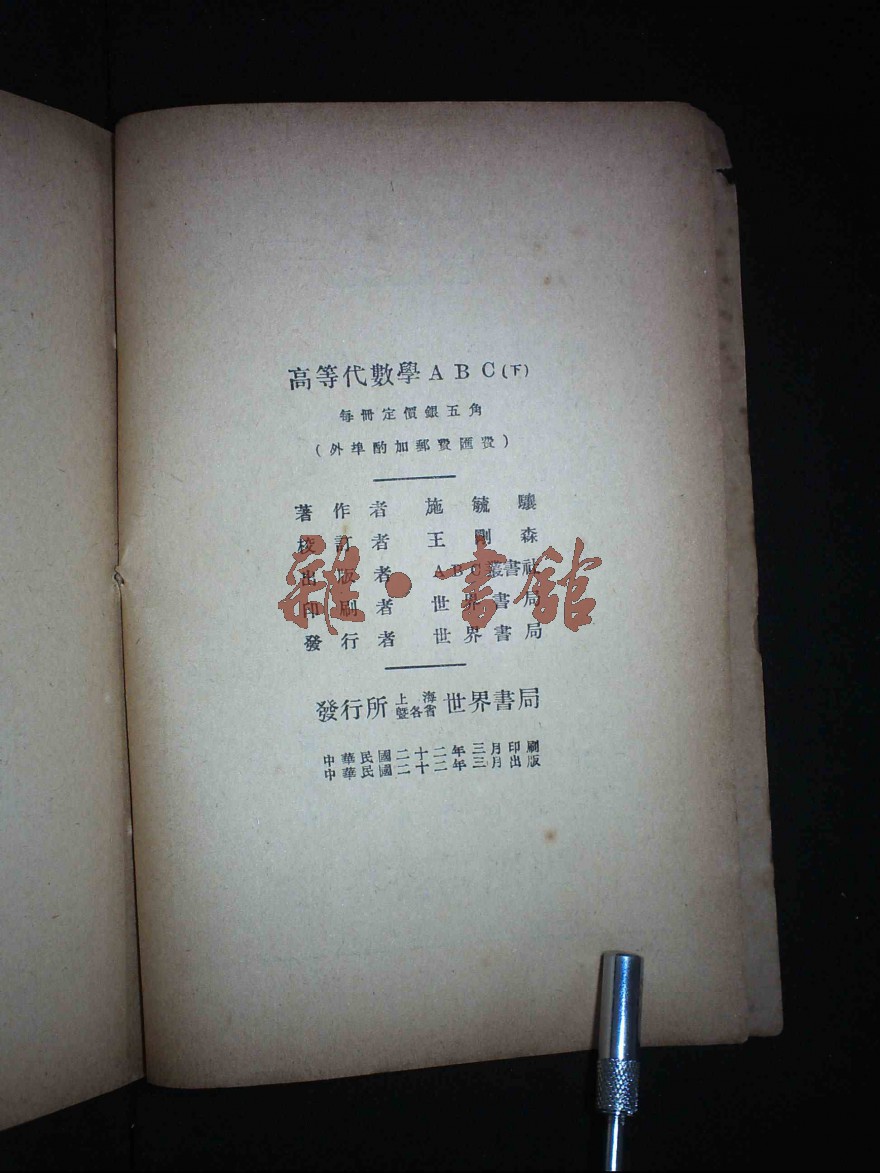 高等代數學ABC(下)
每冊定價銀五角
(外埠酌加郵費匯費)
著作者 施毓驤
校訂者 王剛森
出版者 ABC叢書社
印刷者 世界書局
發行者 世界書局
發行所 上海暨各省 世界書局
中華民國二十二年三月印刷
中華民國二十二年三月出版
雜·書館